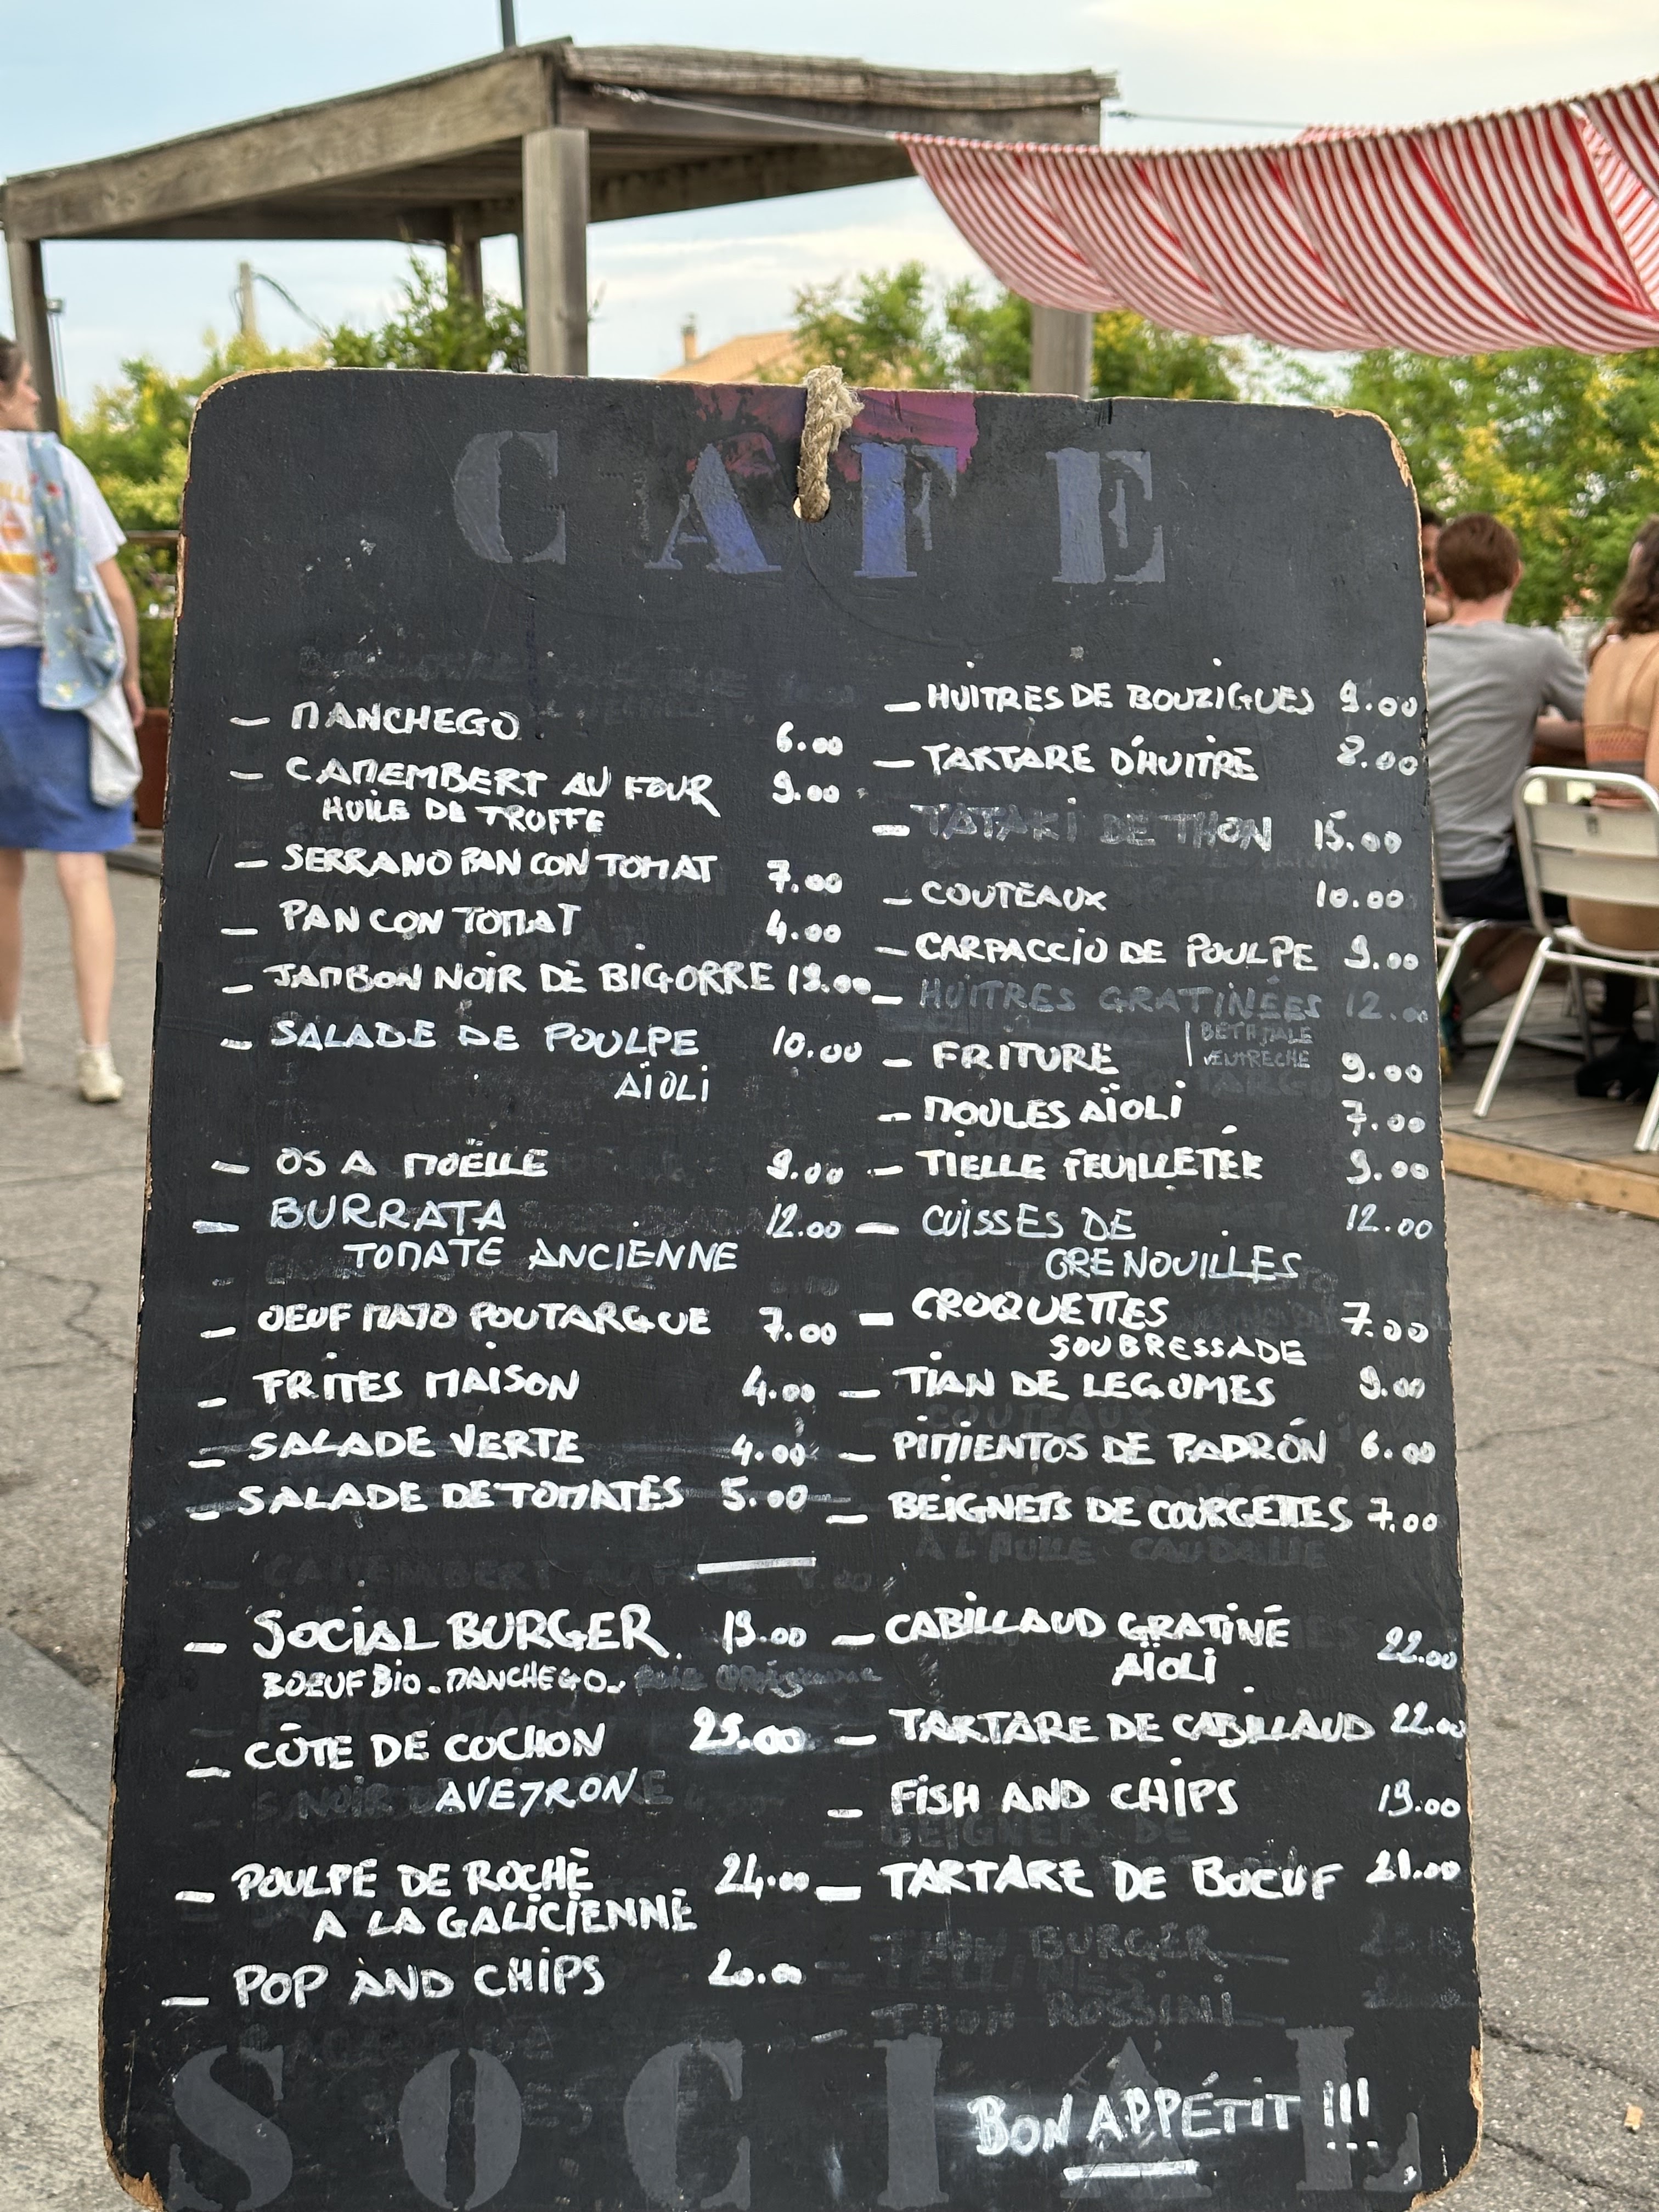 CAFE
— MANCHEGO 6.00
— CAMEMBERT AU FOUR 9.00
HUILE DE TRUFFE
— SERRANO PAN CON TOMAT 7.00
— PAN CON TOMAT 4.00
— JAMBON NOIR DE BIGORRE 19.00
— SALADE DE POULPE 10.00
AÏOLI
— OS A MOËLLE 9.00
— BURRATA 12.00
TOMATE ANCIENNE
— OEUF MAYO POUTARGUE 7.00
— FRITES MAISON 4.00
— SALADE VERTE 4.00
— SALADE DE TOMATES 5.00
— SOCIAL BURGER 19.00
BOEUF BIO - MANCHEGO -
— CÔTE DE COCHON 25.00
AVEYRON
— POULPE DE ROCHE 24.00
A LA GALICIENNE
— POP AND CHIPS 20.00
— HUITRES DE BOUZIGUES 9.00
— TARTARE D'HUITRE 8.00
— TATAKI DE THON 15.00
— COUTEAUX 10.00
— CARPACCIO DE POULPE 9.00
— HUITRES GRATINÉES 12.00
— FRITURE 9.00
— MOULES AÏOLI 7.00
— TIELLE FEUILLETÉE 9.00
— CUISSES DE 12.00
GRENOUILLES
— CROQUETTES 7.00
SOUBRESSADE
— TIAN DE LEGUMES 9.00
— PIMIENTOS DE PADRÓN 6.00
— BEIGNETS DE COURGETTES 7.00
— CABILLAUD GRATINÉ 22.00
AÏOLI
— TARTARE DE CABILLAUD 22.00
— FISH AND CHIPS 19.00
— TARTARE DE BOEUF 21.00
THON BURGER
THON ROSSINI
SOCIAL
BON APPÉTIT !!!